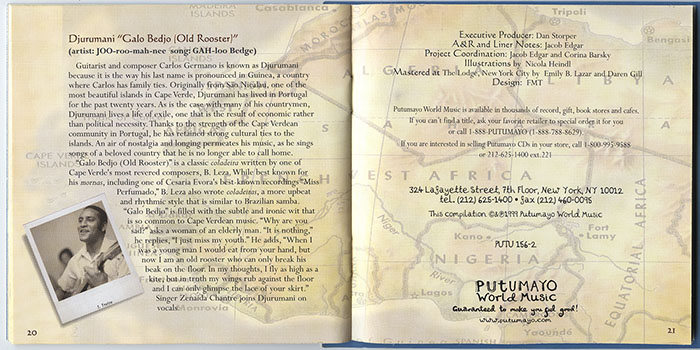 Djurumani "Galo Bedjo (Old Rooster)"
(artist: JOO-roo-mah-nee song: GAH-loo Bedge)
Guitarist and composer Carlos Germano is known as Djurumani
because it is the way his last name is pronounced in Guinea, a country
where Carlos has family ties. Originally from São Nicalau, one of the
most beautiful islands in Cape Verde, Djurumani has lived in Portugal
for the past twenty years. As is the case with many of his countrymen,
Djurumani lives a life of exile, one that is the result of economic rather
than political necessity. Thanks to the strength of the Cape Verdean
community in Portugal, he has retained strong cultural ties to the
islands. An air of nostalgia and longing permeates his music, as he sings
songs of a beloved country that he is no longer able to call home.
"Galo Bedjo (Old Rooster)" is a classic coladeira written by one of
Cape Verde's most revered composers, B. Leza. While best known for
his mornas, including one of Cesaria Evora's best-known recordings "Miss
Perfumado," B. Leza also wrote coladeiras, a more upbeat
and rhythmic style that is similar to Brazilian samba.
"Galo Bedjo" is filled with the subtle and ironic wit that
is so common to Cape Verdean music. "Why are you
sad" asks a woman of an elderly man. "It is nothing,"
he replies, "I just miss my youth." He adds, "When I
was a young man I would eat from your hand, but
now I am an old rooster who can only break his
beak on the floor. In my thoughts, I fly as high as a
kite, but in truth my wings rub against the floor
and I can only glimpse the lace of your skirt."
Singer Zenaida Chantre joins Djurumani on
vocals.
20
Executive Producer: Dan Storper
A&R and Liner Notes: Jacob Edgar
Project Coordination: Jacob Edgar and Corina Barsky
Illustrations by Nicola Heindl
Mastered at The Lodge, New York City by Emily B. Lazar and Daren Gill
Design: FMT
Putumayo World Music is available in thousands of record, gift, book stores and cafes.
If you can't find a title, ask your favorite retailer to special order it for you
or call 1-888-PUTUMAYO (1-888-788-8629).
If you are interested in selling Putumayo CDs in your store, call 1-800-995-9588
or 212-625-1400 ext.221
324 Lafayette Street, 7th Floor, New York, NY 10012
tel. (212) 625-1400 • fax (212) 460-0095
This compilation ©&℗1999 Putumayo World Music
PUTU 156-2
PUTUMAYO
World Music
Guaranteed to make you feel good!
www.putumayo.com
21
Casablanca
Tripoli
Bengasi
ALGERIA
WEST AFRICA
Kano
Fort
Lamy
NIGERIA
Niger
River
Lagos
Yaoundé
EQUATORIAL AFRICA
Monrovia